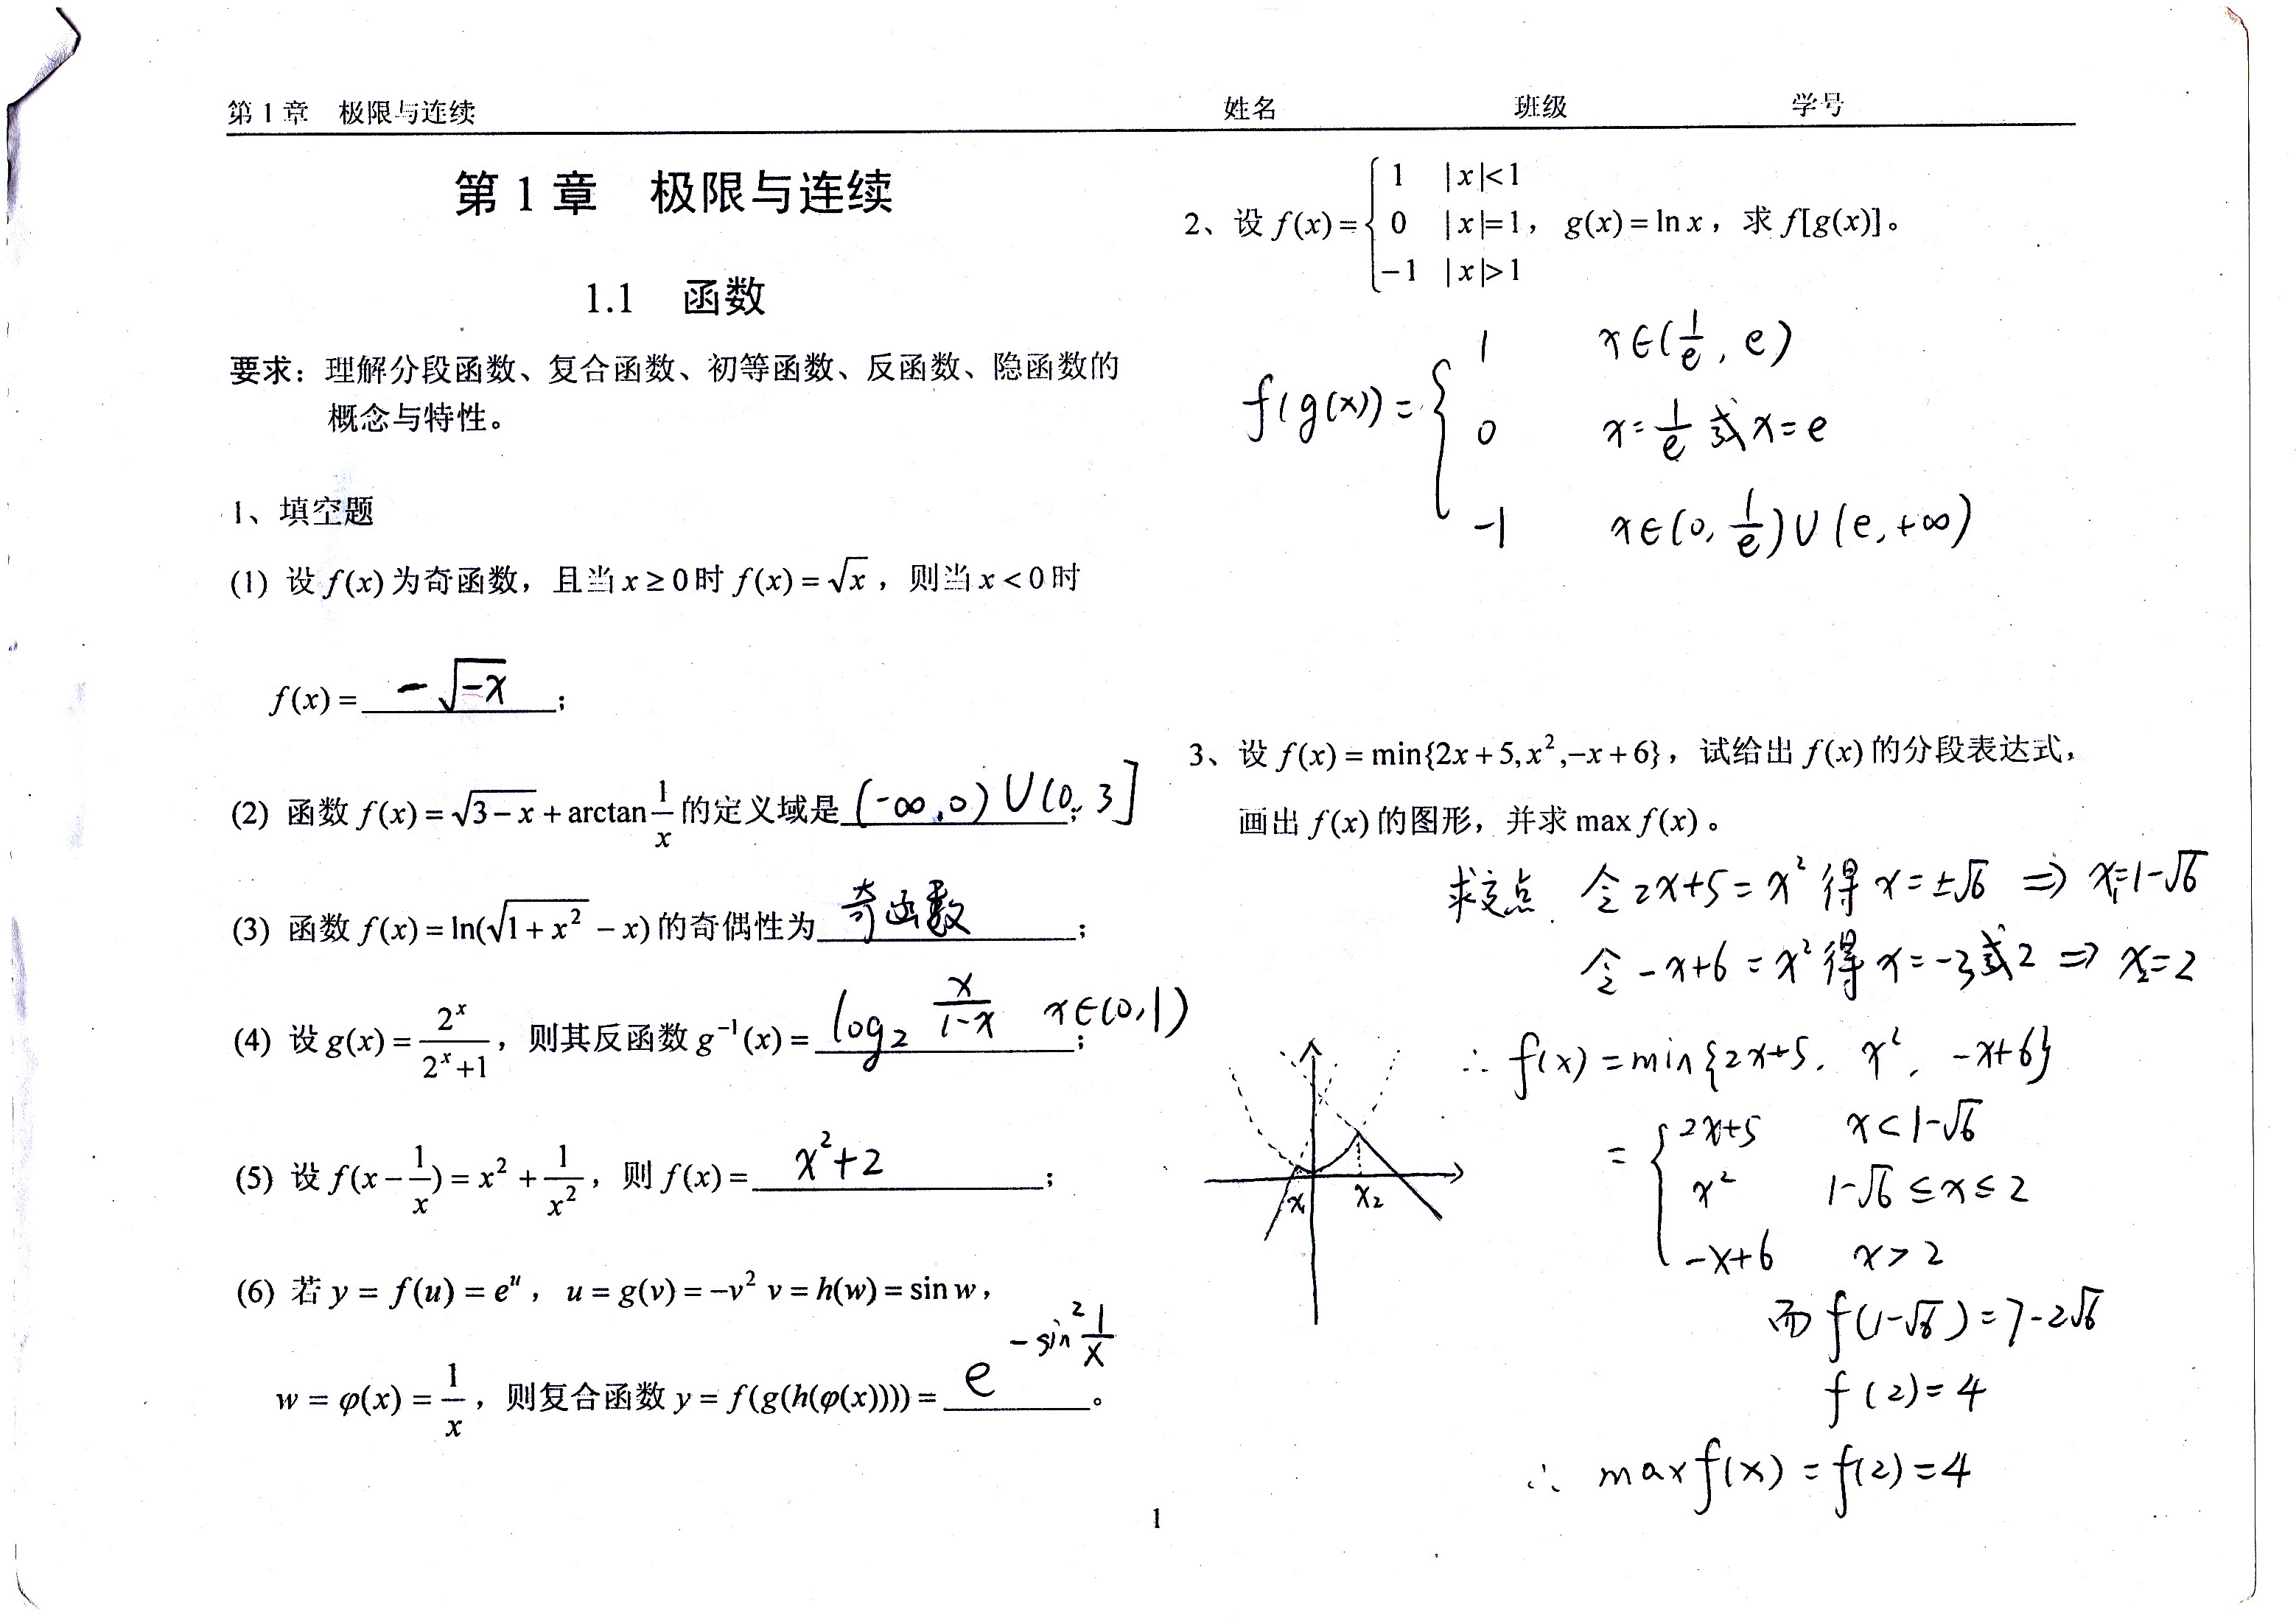 第 1 章　极限与连续　姓名　班级　学号
第 1 章　极限与连续
1.1　函数
要求：理解分段函数、复合函数、初等函数、反函数、隐函数的
概念与特性。
1、填空题
(1) 设 f(x) 为奇函数，且当 x ≥ 0 时 f(x) = √x，则当 x < 0 时
f(x) = -√(-x) ；
(2) 函数 f(x) = √(3-x) + arctan 1/x 的定义域是 (-∞,0)∪(0,3] ；
(3) 函数 f(x) = ln(√(1+x²) - x) 的奇偶性为 奇函数 ；
(4) 设 g(x) = 2^x/(2^x+1)，则其反函数 g⁻¹(x) = log₂ x/(1-x)　x∈(0,1) ；
(5) 设 f(x - 1/x) = x² + 1/x²，则 f(x) = x²+2 ；
(6) 若 y = f(u) = e^u，u = g(v) = -v² v = h(w) = sin w，
w = φ(x) = 1/x，则复合函数 y = f(g(h(φ(x)))) = e^(-sin² 1/x) 。
2、设 f(x) = { 1　|x|<1
0　|x|=1，g(x) = ln x，求 f[g(x)]。
-1　|x|>1
f(g(x)) = { 1　x∈(1/e, e)
0　x=1/e 或 x=e
-1　x∈(0, 1/e)∪(e, +∞)
3、设 f(x) = min{2x+5, x², -x+6}，试给出 f(x) 的分段表达式，
画出 f(x) 的图形，并求 max f(x)。
求交点. 令 2x+5 = x² 得 x = ±√6 ⇒ x₁=1-√6
令 -x+6 = x² 得 x = -3或2 ⇒ x₂=2
∴ f(x) = min{2x+5, x², -x+6}
= { 2x+5　x < 1-√6
x²　1-√6 ≤ x ≤ 2
-x+6　x > 2
x₁　x₂
而 f(1-√6) = 7-2√6
f(2) = 4
∴ max f(x) = f(2) = 4
1